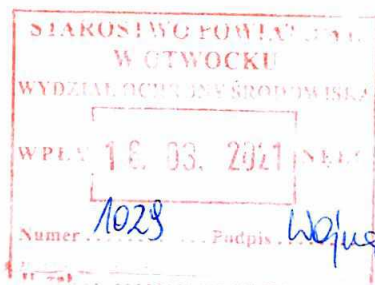 STAROSTWO POWIATOWE
W OTWOCKU
WYDZIAŁ OCHRONY ŚRODOWISKA
WPŁYNĘŁO 16. 03. 2021
Numer 1029 Podpis Wojna